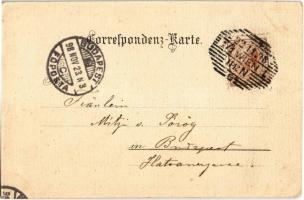 Correspondenz-Karte.
BUDAPEST
98 NOV 23 N 3
FŐPOSTA
WIEN
Fräulein
Mitzi v.
in Budapest
Hatvanergasse.